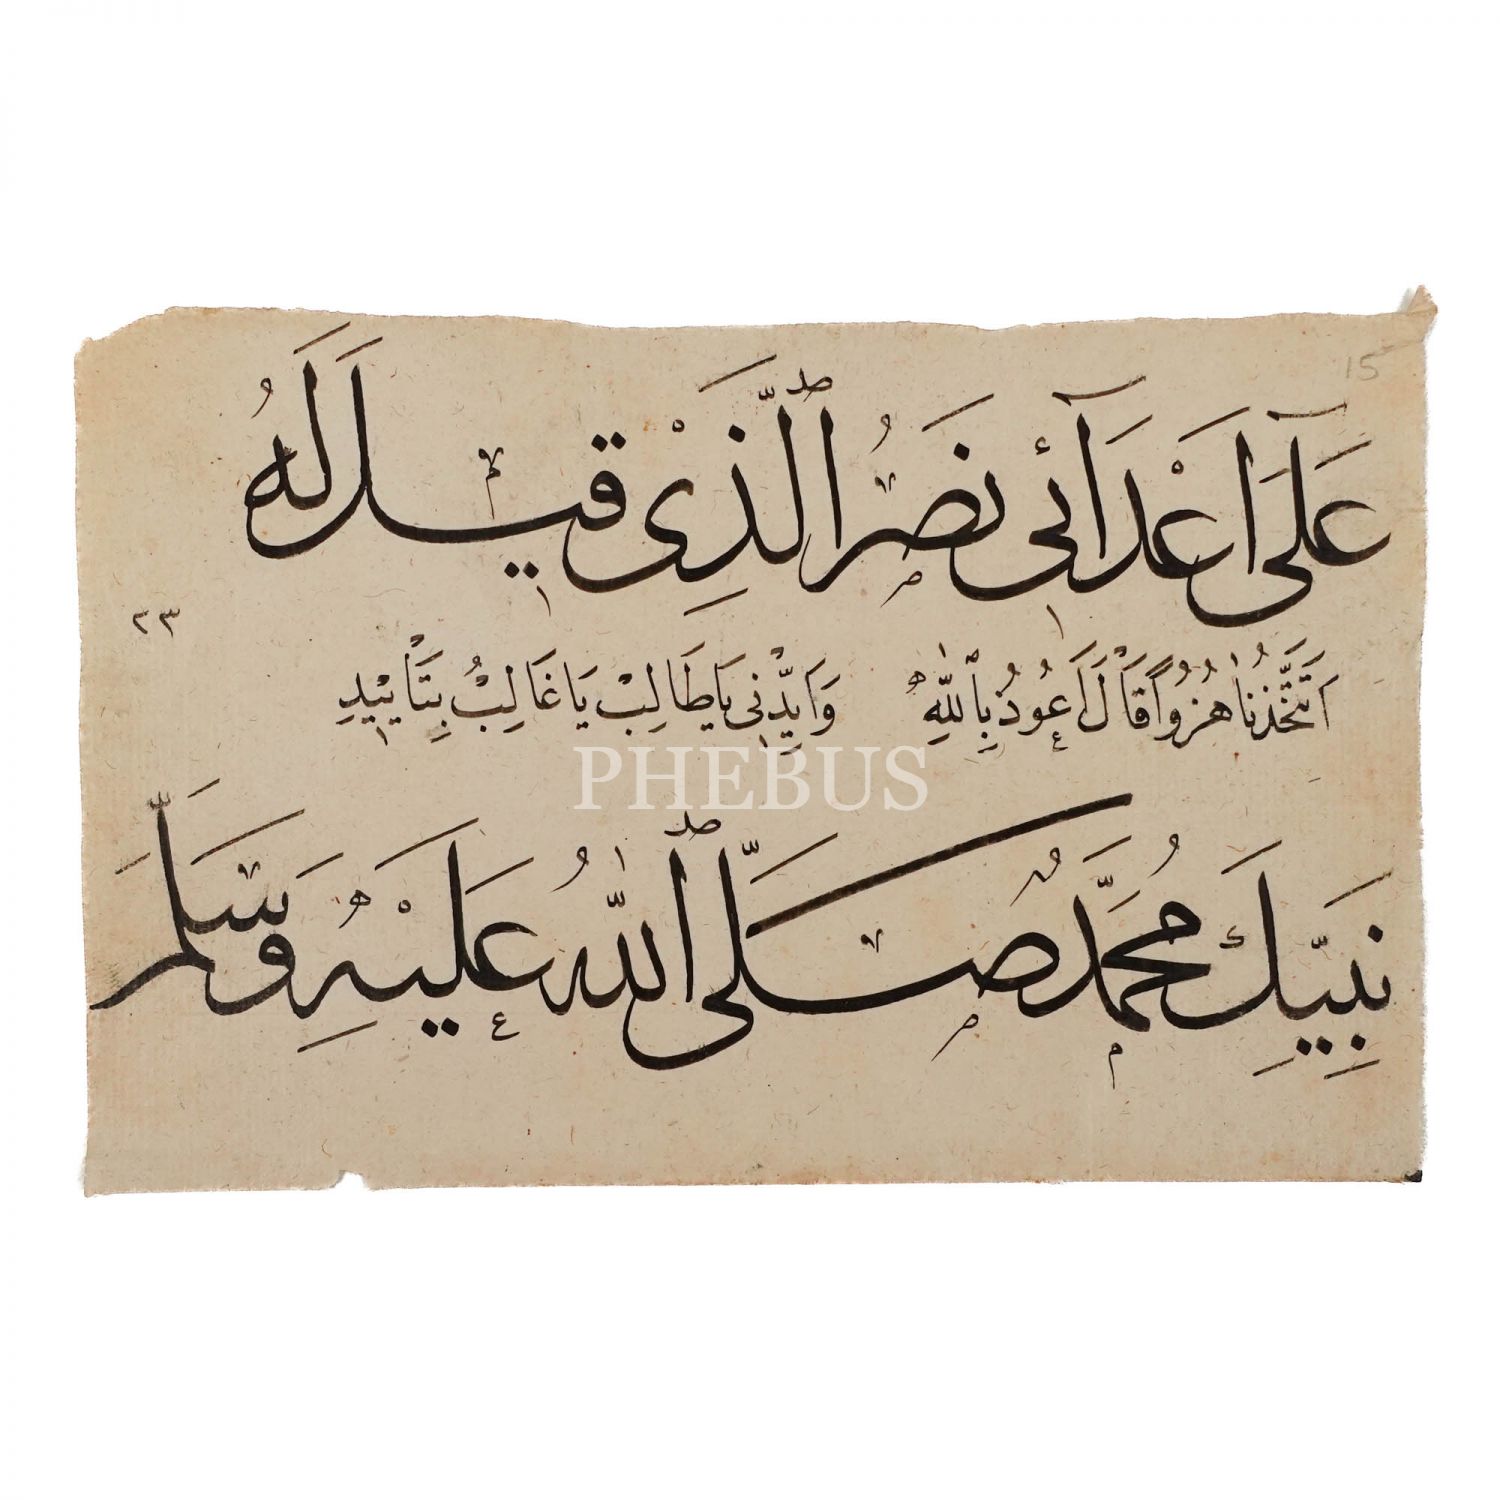 15
عَلَىٓ اَعْدَٓائ۪ى نَصْرُ ٱلَّذِىْ ق۪يلَ لَهُ
٢٣
اَتَتَّخِذُنَا هُزُوًا قَالَ اَعُوذُ بِٱللّٰهِ وَاَيِّدْن۪ى يَا طَالِبْ يَا غَالِبُ بِتَاْي۪يدِ
PHEBUS
نَبِيِّكَ مُحَمَّدٍ صَلَّى ٱللّٰهُ عَلَيْهِ وَسَلَّمَ